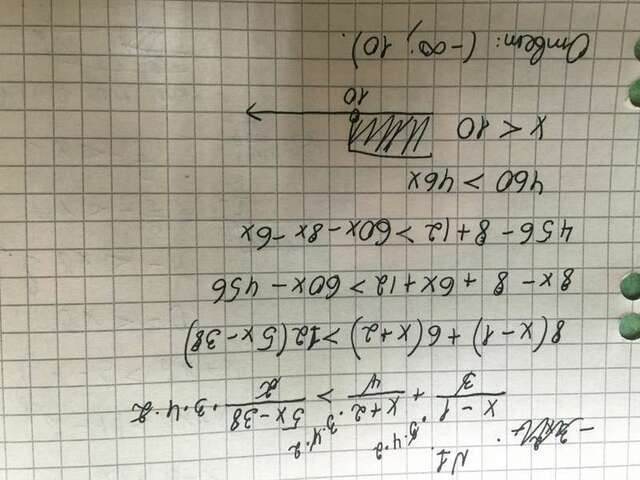 N1.
(x-1)/3 ·3·4·2 + (x+2)/4 ·3·4·2 > (5x-38)/2 ·3·4·2
8(x-1)+6(x+2)>12(5x-38)
8x-8+6x+12>60x-456
456-8+12>60x-8x-6x
460>46x
x<10
10
Ответ: (-∞; 10).